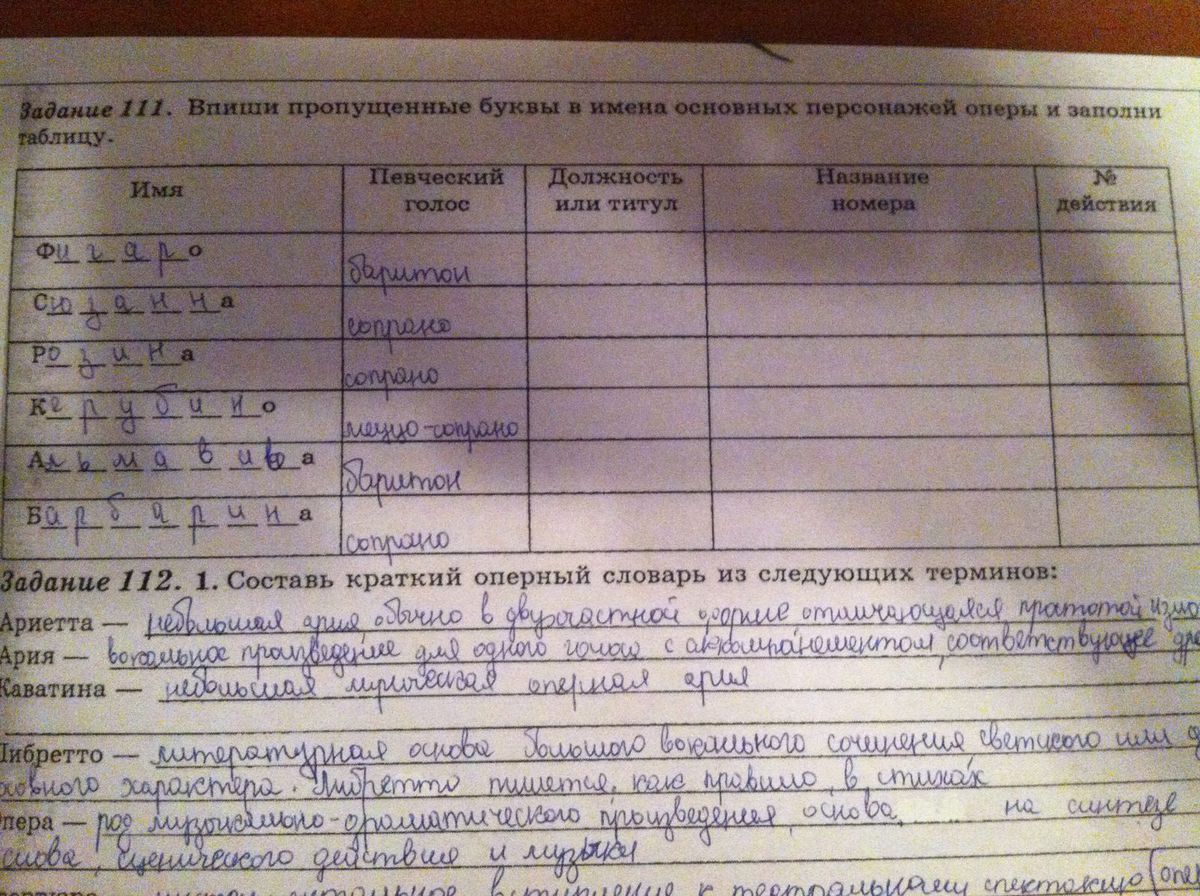 Задание 111. Впиши пропущенные буквы в имена основных персонажей оперы и заполни
таблицу.
Имя
Певческий
голос
Должность
или титул
Название
номера
№
действия
Фигаро
баритон
Сюзанна
сопрано
Розина
сопрано
Керубино
меццо-сопрано
Альмавива
баритон
Барбарина
сопрано
Задание 112. 1. Составь краткий оперный словарь из следующих терминов:
Ариетта — небольшая ария, обычно в двухчастной форме отличающаяся простотой
Ария — вокальное произведение для одного голоса с аккомпанементом, соответствующее
Каватина — небольшая лирическая оперная ария
Либретто — литературная основа большого вокального сочинения светского или
ховного характера. Либретто пишется, как правило, в стихах
пера — род музыкально-драматического произведения, основа на синтезе
слова, сценического действия и музыки
вступление к театральному спектаклю (опе